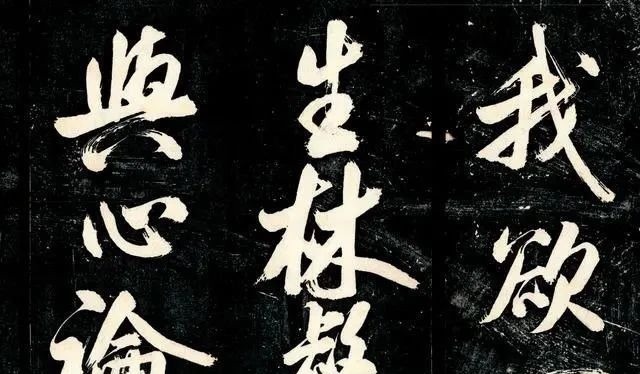 我欲
生林
與心論